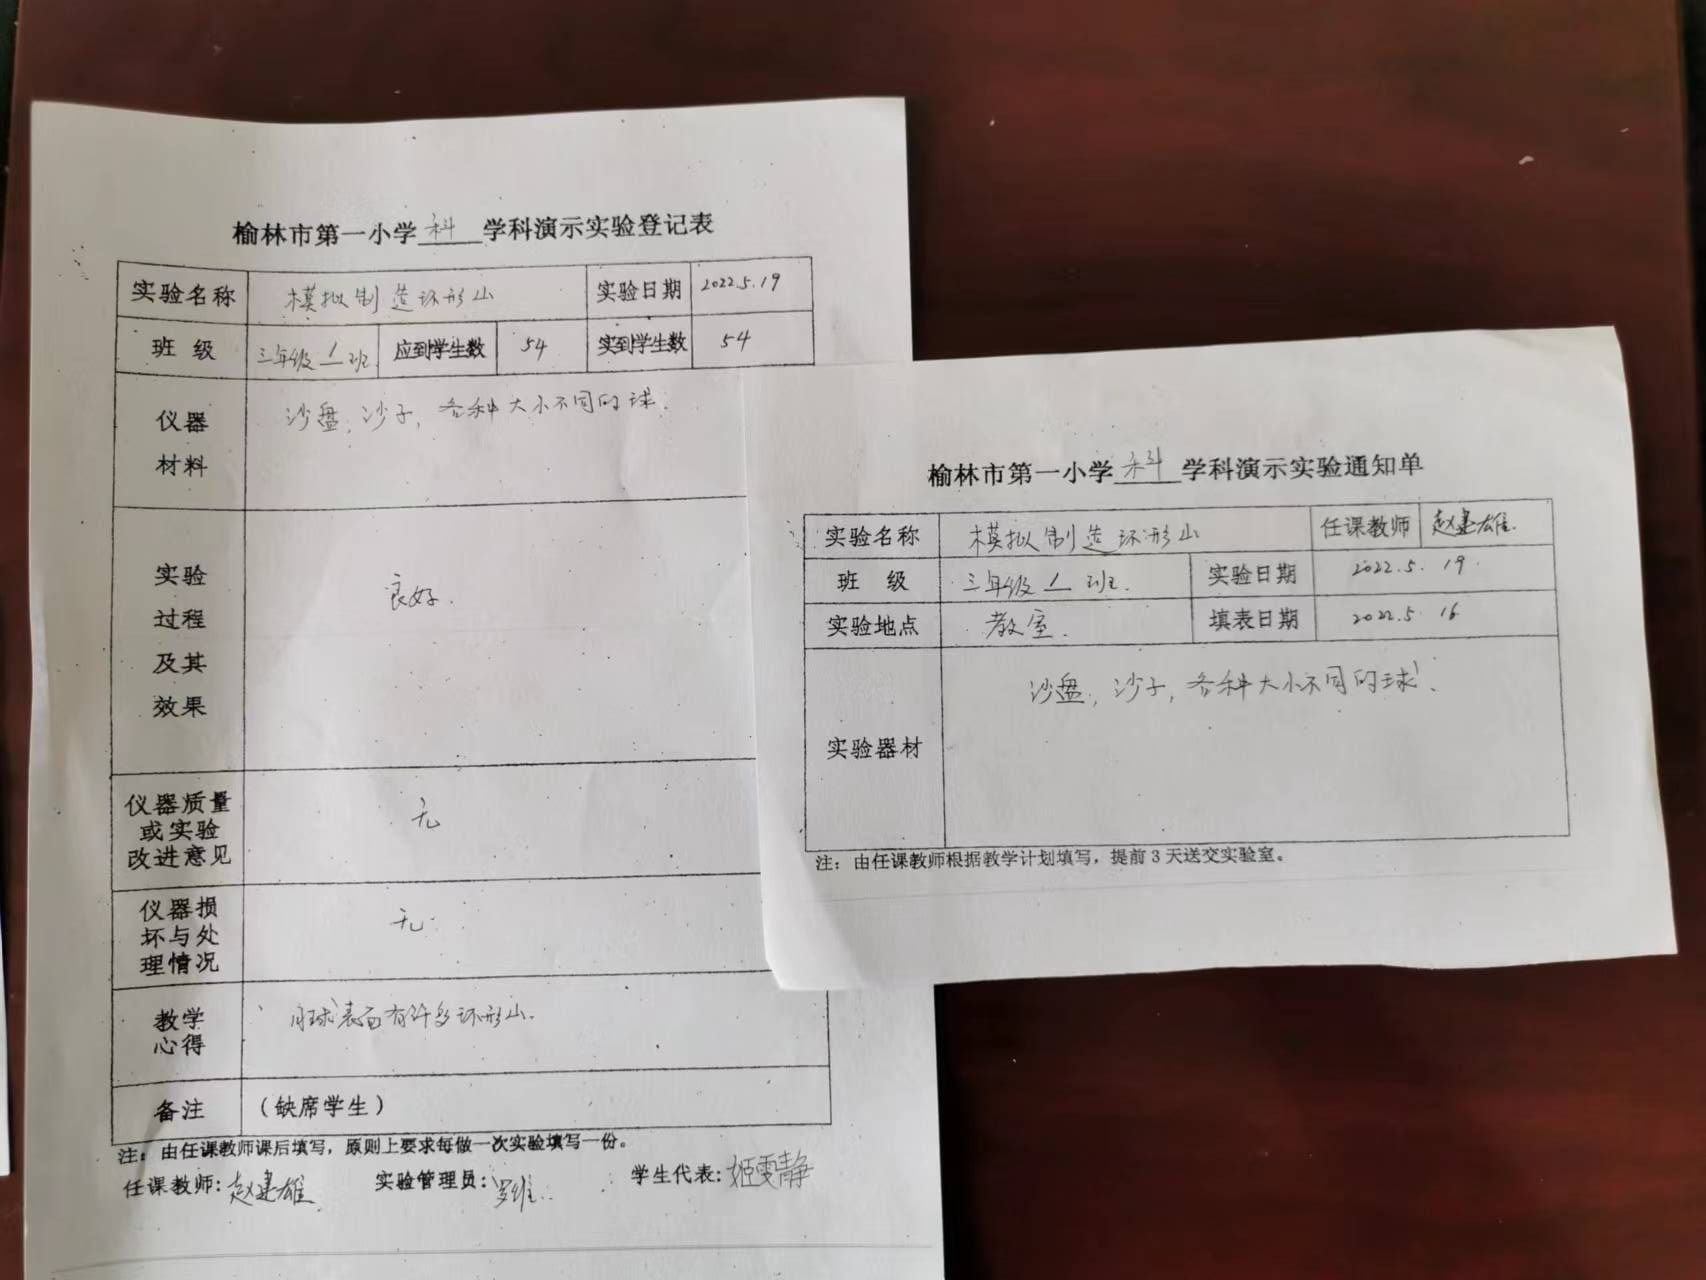 榆林市第一小学 科 学科演示实验登记表
实验名称 模拟制造环形山 实验日期 2022.5.19
班 级 三年级1班 应到学生数 54 实到学生数 54
仪器
材料
沙盘,沙子,各种大小不同的球.
实验
过程
及其
效果
良好.
仪器质量
或实验
改进意见
无
仪器损
坏与处
理情况
无.
教学
心得
月球表面有许多环形山.
备注 (缺席学生)
注:由任课教师课后填写,原则上要求每做一次实验填写一份。
任课教师:赵建雄 实验管理员:罗维 学生代表:姬雯静
榆林市第一小学 科 学科演示实验通知单
实验名称 模拟制造环形山 任课教师 赵建雄.
班 级 三年级1班. 实验日期 2022.5.19.
实验地点 教室. 填表日期 2022.5.16
实验器材
沙盘,沙子,各种大小不同的球.
注:由任课教师根据教学计划填写,提前3天送交实验室。